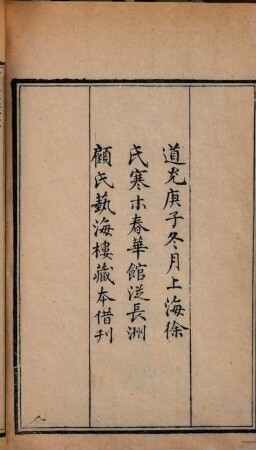 道光庚子冬月上海徐
氏寒木春華館從長洲
顧氏藝海樓藏本借刊